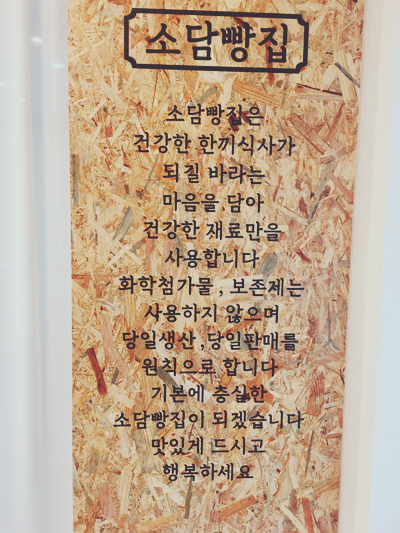 소담빵집
소담빵집은
건강한 한끼식사가
되길 바라는
마음을 담아
건강한 재료만을
사용합니다
화학첨가물 , 보존제는
사용하지 않으며
당일생산 ,당일판매를
원칙으로 합니다
기본에 충실한
소담빵집이 되겠습니다
맛있게 드시고
행복하세요